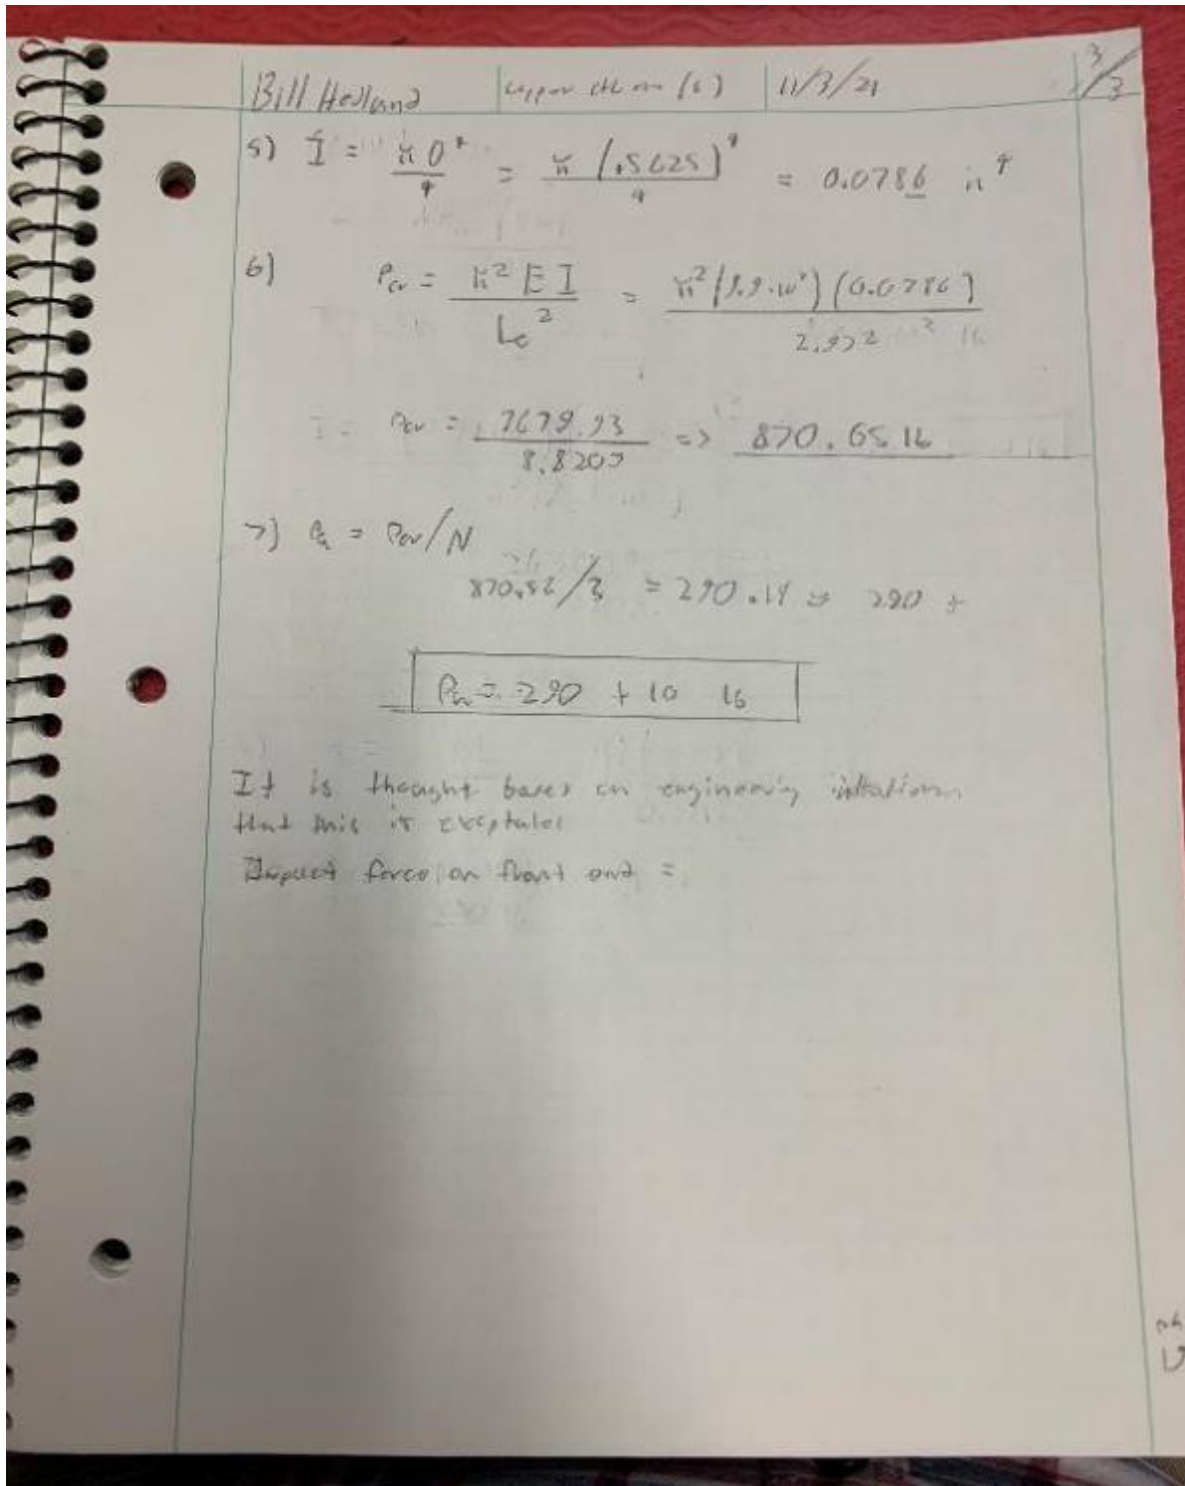 Bill Hedlund | upper ctl arm (c) | 11/3/21 3/3
5) I = πD⁴/4 = π(.5625)⁴/4 = 0.0786 in⁴
6) Pcr = π²EI/Le² = π²(9.9·10³)(0.0786)/2.972
Pcr = 7679.93/8.8209 => 870.65 lb
7) Pa = Pcr/N
870.56/3 = 290.19 => 290 ±
Pa = 290 ± 10 lb
It is thought based on engineering
that this is
Impact force on front end =